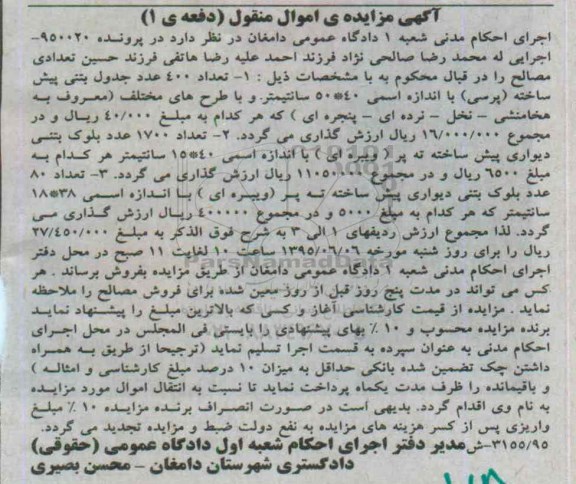 آگهی مزایده ی اموال منقول (دفعه ی ۱)
اجرای احکام مدنی شعبه ۱ دادگاه عمومی دامغان در نظر دارد در پرونده ۹۵۰۰۲۰-
اجرایی له محمد رضا صالحی نژاد فرزند احمد علیه رضا هاتفی فرزند حسین تعدادی
مصالح را در قبال محکوم به با مشخصات ذیل : ۱- تعداد ۴۰۰ عدد جدول بتنی پیش
ساخته (پرسی) با اندازه اسمی ۴۰*۵۰ سانتیمتر و با طرح های مختلف (معروف به
هخامنشی - نخل - نرده ای - پنجره ای ) که هر کدام به مبلغ ۴۰/۰۰۰ ریال و در
مجموع ۱۶/۰۰۰/۰۰۰ ریال ارزش گذاری می گردد. ۲- تعداد ۱۷۰۰ عدد بلوک بتنی
دیواری پیش ساخته ته پر ( ویبره ای ) با اندازه اسمی ۴۰*۱۵ سانتیمتر هر کدام به
مبلغ ۶۵۰۰ ریال و در مجموع ریال ارزش گذاری می گردد. ۳- تعداد ۸۰
عدد بلوک بتنی دیواری پیش ساخته ته پر (ویبره ای ) با اندازه اسمی ۳۸*۱۸
سانتیمتر که هر کدام به مبلغ ۵۰۰۰ و در مجموع ۴۰۰۰۰۰ ریال ارزش گذاری می
گردد. لذا مجموع ارزش ردیفهای ۱ الی ۳ به شرح فوق الذکر به مبلغ ۲۷/۴۵۰/۰۰۰
ریال را برای روز شنبه مورخه ۱۳۹۵/۰۶/۰۶ ساعت ۱۰ لغایت ۱۱ صبح در محل دفتر
اجرای احکام مدنی شعبه ۱ دادگاه عمومی دامغان از طریق مزایده بفروش برساند . هر
کس می تواند در مدت پنج روز قبل از روز معین شده برای فروش مصالح را ملاحظه
نماید . مزایده از قیمت کارشناسی آغاز و کسی که بالاترین مبلغ را پیشنهاد نماید
برنده مزایده محسوب و ۱۰ ٪ بهای پیشنهادی را بایستی فی المجلس در محل اجرای
احکام مدنی به عنوان سپرده به قسمت اجرا تسلیم نماید (ترجیحا از طریق به همراه
داشتن چک تضمین شده بانکی حداقل به میزان ۱۰ درصد مبلغ کارشناسی و امثاله )
و باقیمانده را ظرف مدت یکماه پرداخت نماید تا نسبت به انتقال اموال مورد مزایده
به نام وی اقدام گردد. بدیهی است در صورت انصراف برنده مزایده ۱۰ ٪ مبلغ
واریزی پس از کسر هزینه های مزایده به نفع دولت ضبط و مزایده تجدید می گردد.
۳۱۵۵/۹۵-ش مدیر دفتر اجرای احکام شعبه اول دادگاه عمومی (حقوقی)
دادگستری شهرستان دامغان - محسن بصیری
ParsNamadData